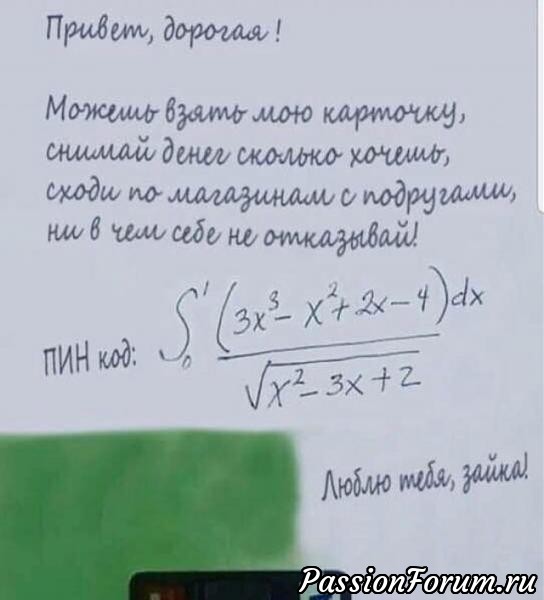 Привет, дорогая!
Можешь взять мою карточку,
снимай денег сколько хочешь,
сходи по магазинам с подругами,
ни в чем себе не отказывай!
ПИН код: ∫₀¹ (3x³ - x² + 2x - 4)dx / √(x² - 3x + 2)
Люблю тебя, зайка!
PassionForum.ru